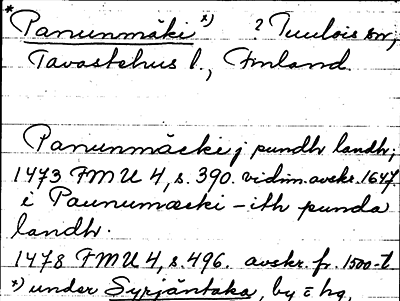 * Panunmäki *) ? Tuulois sn,
Tavastehus l., Finland.
Panunmäcki j pundh landh;
1473 FMU 4, s. 390. vidim. avskr. 1647
i Paunumæcki - ith punda
landh.
1478 FMU 4, s. 496. avskr. fr. 1500-t.
*) under Syrjäntaka, by o hg,